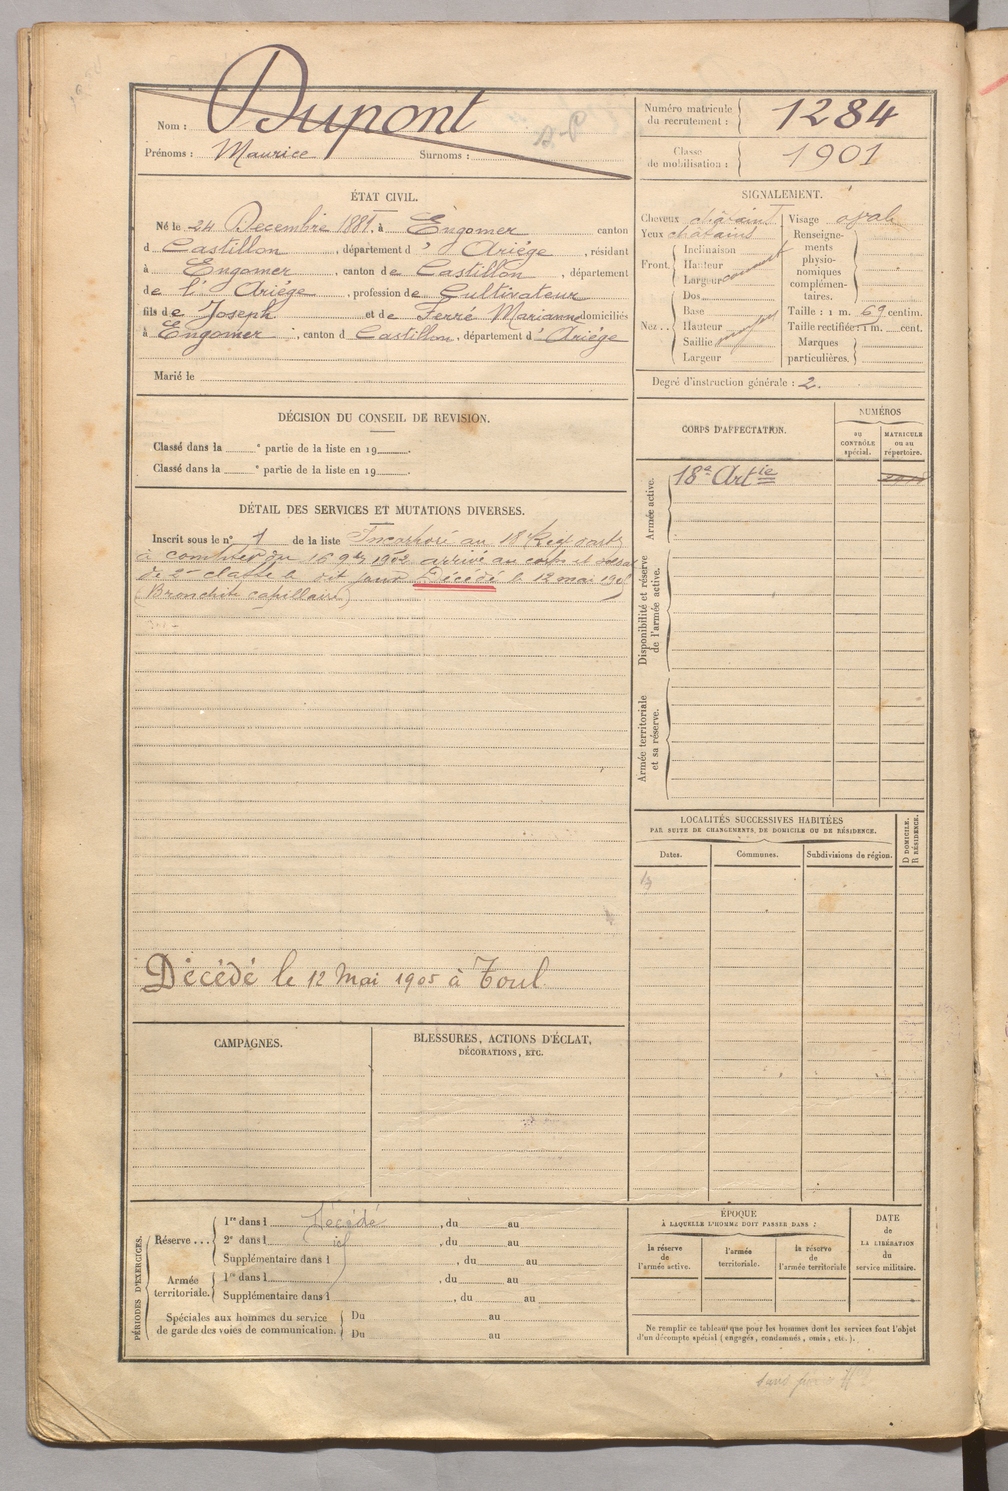 Nom : Dupont
Prénoms : Maurice Surnoms :
Numéro matricule
du recrutement : 1284
Classe
de mobilisation : 1901
ÉTAT CIVIL.
Né le 24 Decembre 1881, à Engomer canton
d Castillon , département d' Ariège , résidant
à Engomer , canton de Castillon , département
de l' Ariège , profession de Cultivateur
fils de Joseph et de Ferré Marianne domiciliés
à Engomer , canton d Castillon , département d' Ariège
Marié le
SIGNALEMENT.
Cheveux châtains Visage oval
Yeux chatains
Front. Inclinaison
Hauteur
Largeur
Nez . . Dos
Base
Hauteur
Saillie
Largeur
Renseigne-
ments
physio-
nomiques
complémen-
taires.
Taille : 1 m. 69 centim.
Taille rectifiée : 1 m. cent.
Marques
particulières.
Degré d'instruction générale : 2.
DÉCISION DU CONSEIL DE REVISION.
Classé dans la e partie de la liste en 19 .
Classé dans la e partie de la liste en 19 .
CORPS D'AFFECTATION.
NUMÉROS
au
CONTRÔLE
spécial.
MATRICULE
ou au
répertoire.
Armée active.
18e Artie
Disponibilité et réserve
de l'armée active.
Armée territoriale
et sa réserve.
DÉTAIL DES SERVICES ET MUTATIONS DIVERSES.
Inscrit sous le n° 1 de la liste Incorporé au 18 Reg d'art
à compter du 16 9bre 1902 arrivé au corps et soldat
de 2e classe le dit jour Décédé le 12 mai
(Bronchite capillaire)
Décédé le 12 Mai 1905 à Toul
LOCALITÉS SUCCESSIVES HABITÉES
PAR SUITE DE CHANGEMENTS DE DOMICILE OU DE RÉSIDENCE.
Dates.
Communes.
Subdivisions de région.
D DOMICILE.
R RÉSIDENCE.
CAMPAGNES.
BLESSURES, ACTIONS D'ÉCLAT,
DÉCORATIONS, ETC.
PÉRIODES D'EXERCICES.
Réserve . . . 1re dans l Décédé , du au
2e dans l id , du au
Supplémentaire dans l , du au
Armée
territoriale. 1re dans l , du au
Supplémentaire dans l , du au
Spéciales aux hommes du service
de garde des voies de communication. Du au
Du au
ÉPOQUE
À LAQUELLE L'HOMME DOIT PASSER DANS :
la réserve
de
l'armée active.
l'armée
territoriale.
la réserve
de
l'armée territoriale
DATE
de
LA LIBÉRATION
du
service militaire.
Ne remplir ce tableau que pour les hommes dont les services font l'objet
d'un décompte spécial (engagés, condamnés, omis, etc.).